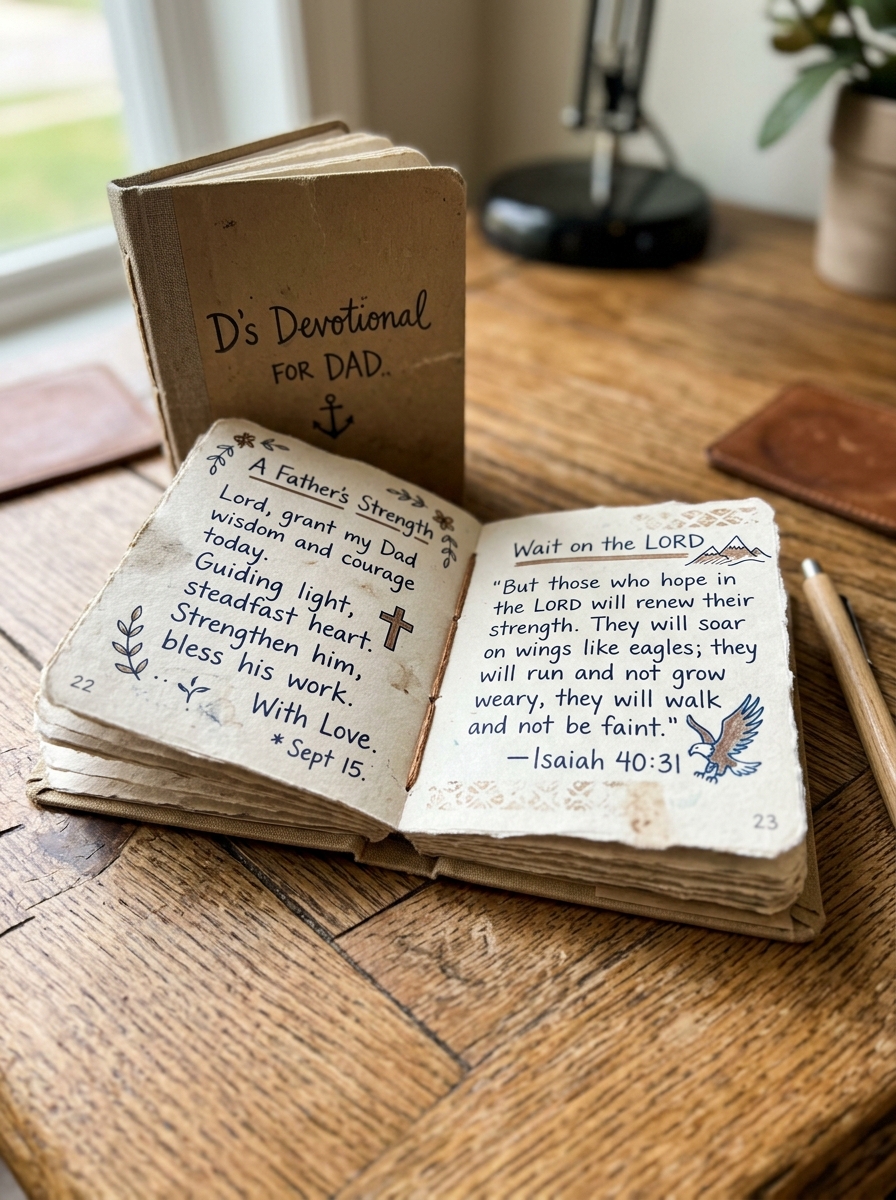 D's Devotional
FOR DAD..
A Father's Strength
Lord, grant my Dad
wisdom and courage
today.
Guiding light,
steadfast heart.
Strengthen him,
bless his work.
With Love.
* Sept 15.
22
Wait on the LORD
"But those who hope in
the LORD will renew their
strength. They will soar
on wings like eagles; they
will run and not grow
weary, they will walk
and not be faint."
—Isaiah 40:31
23